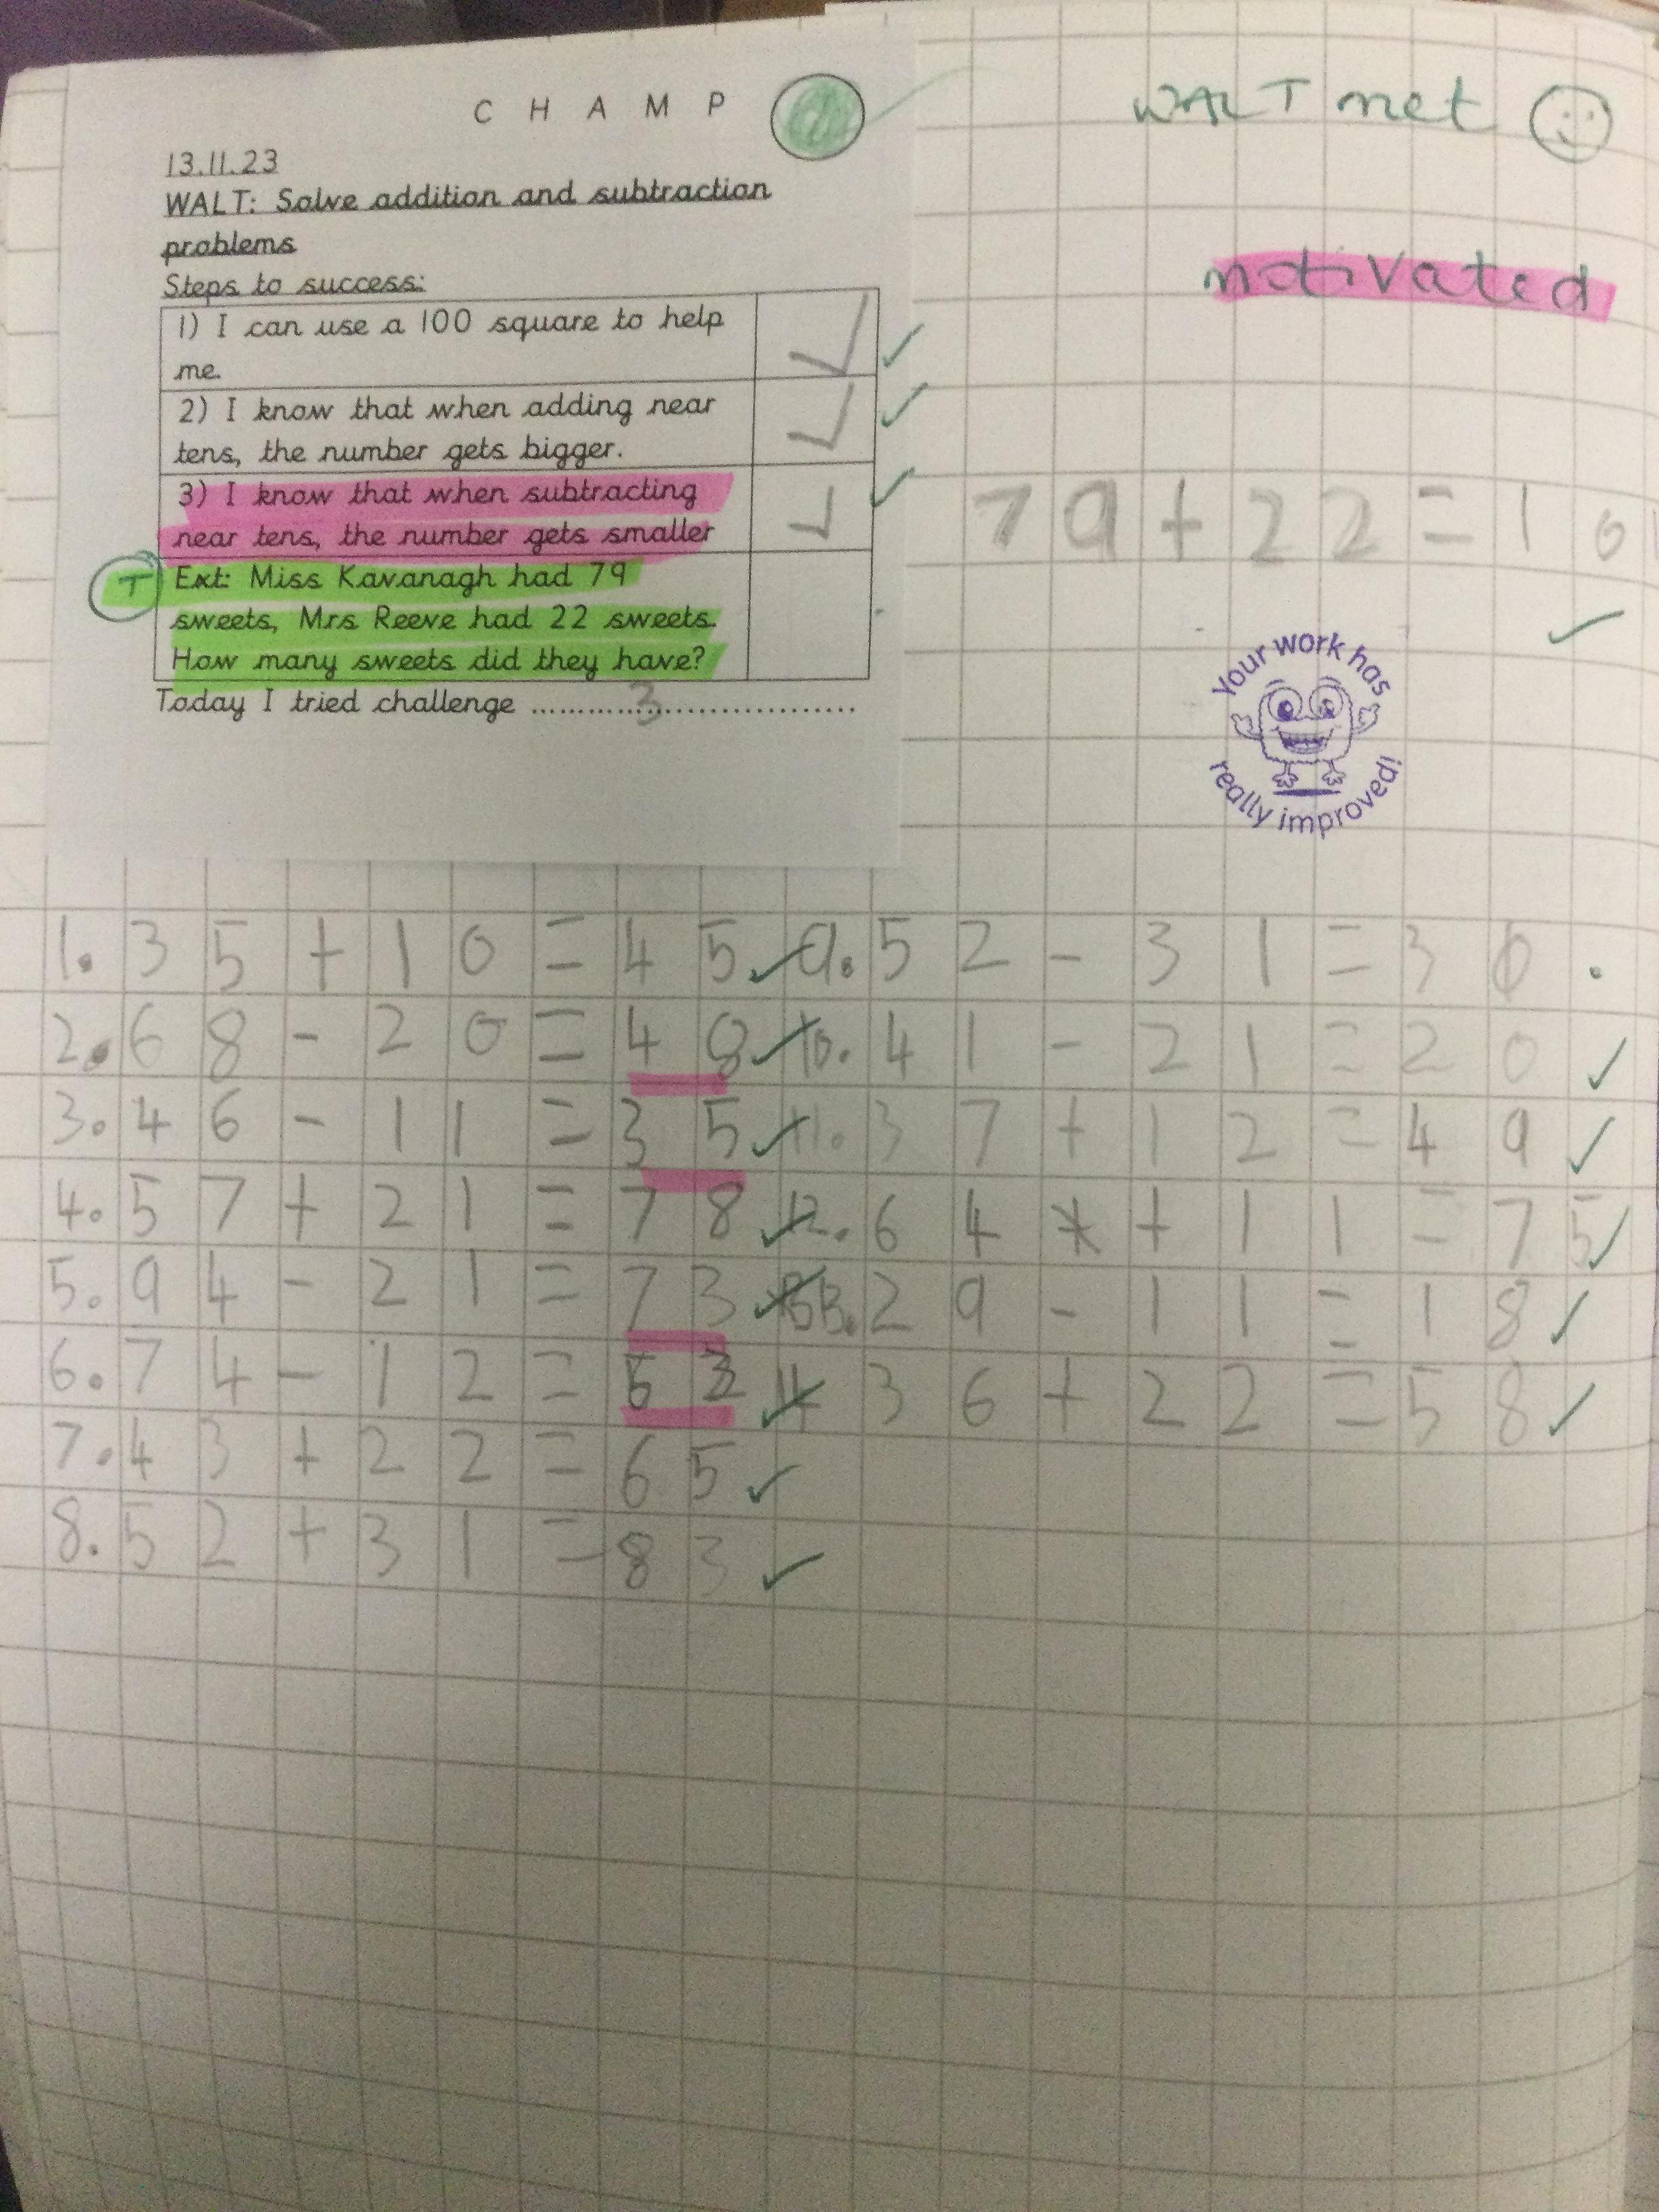 C H A M P
WALT met
13.11.23
WALT: Solve addition and subtraction
problems
motivated
Steps to success:
1) I can use a 100 square to help
me.
2) I know that when adding near
tens, the number gets bigger.
3) I know that when subtracting
near tens, the number gets smaller
79+22=101
T
Ext: Miss Kavanagh had 79
sweets, Mrs Reeve had 22 sweets.
How many sweets did they have?
Today I tried challenge ......3......
Your work has
really improved!
1. 35+10=45
2. 68-20=48
3. 46-11=35
4. 57+21=78
5. 94-21=73
6. 74-12=
7. 43+22=65
8. 52+31=83
9. 52-31=30
10. 41-21=20
11. 37+12=49
12. 64+11=75
13. 29-11=18
14 36+22=58